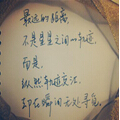 最远的距离
不是星星之间的轨迹
而是,
纵然轨迹交汇,
却在瞬间无处寻觅。